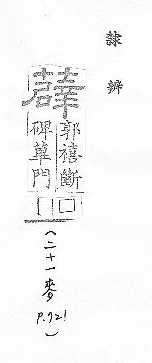 隸辨
郭禧斷□
碑蓽門□
(二十一麥
P.721)